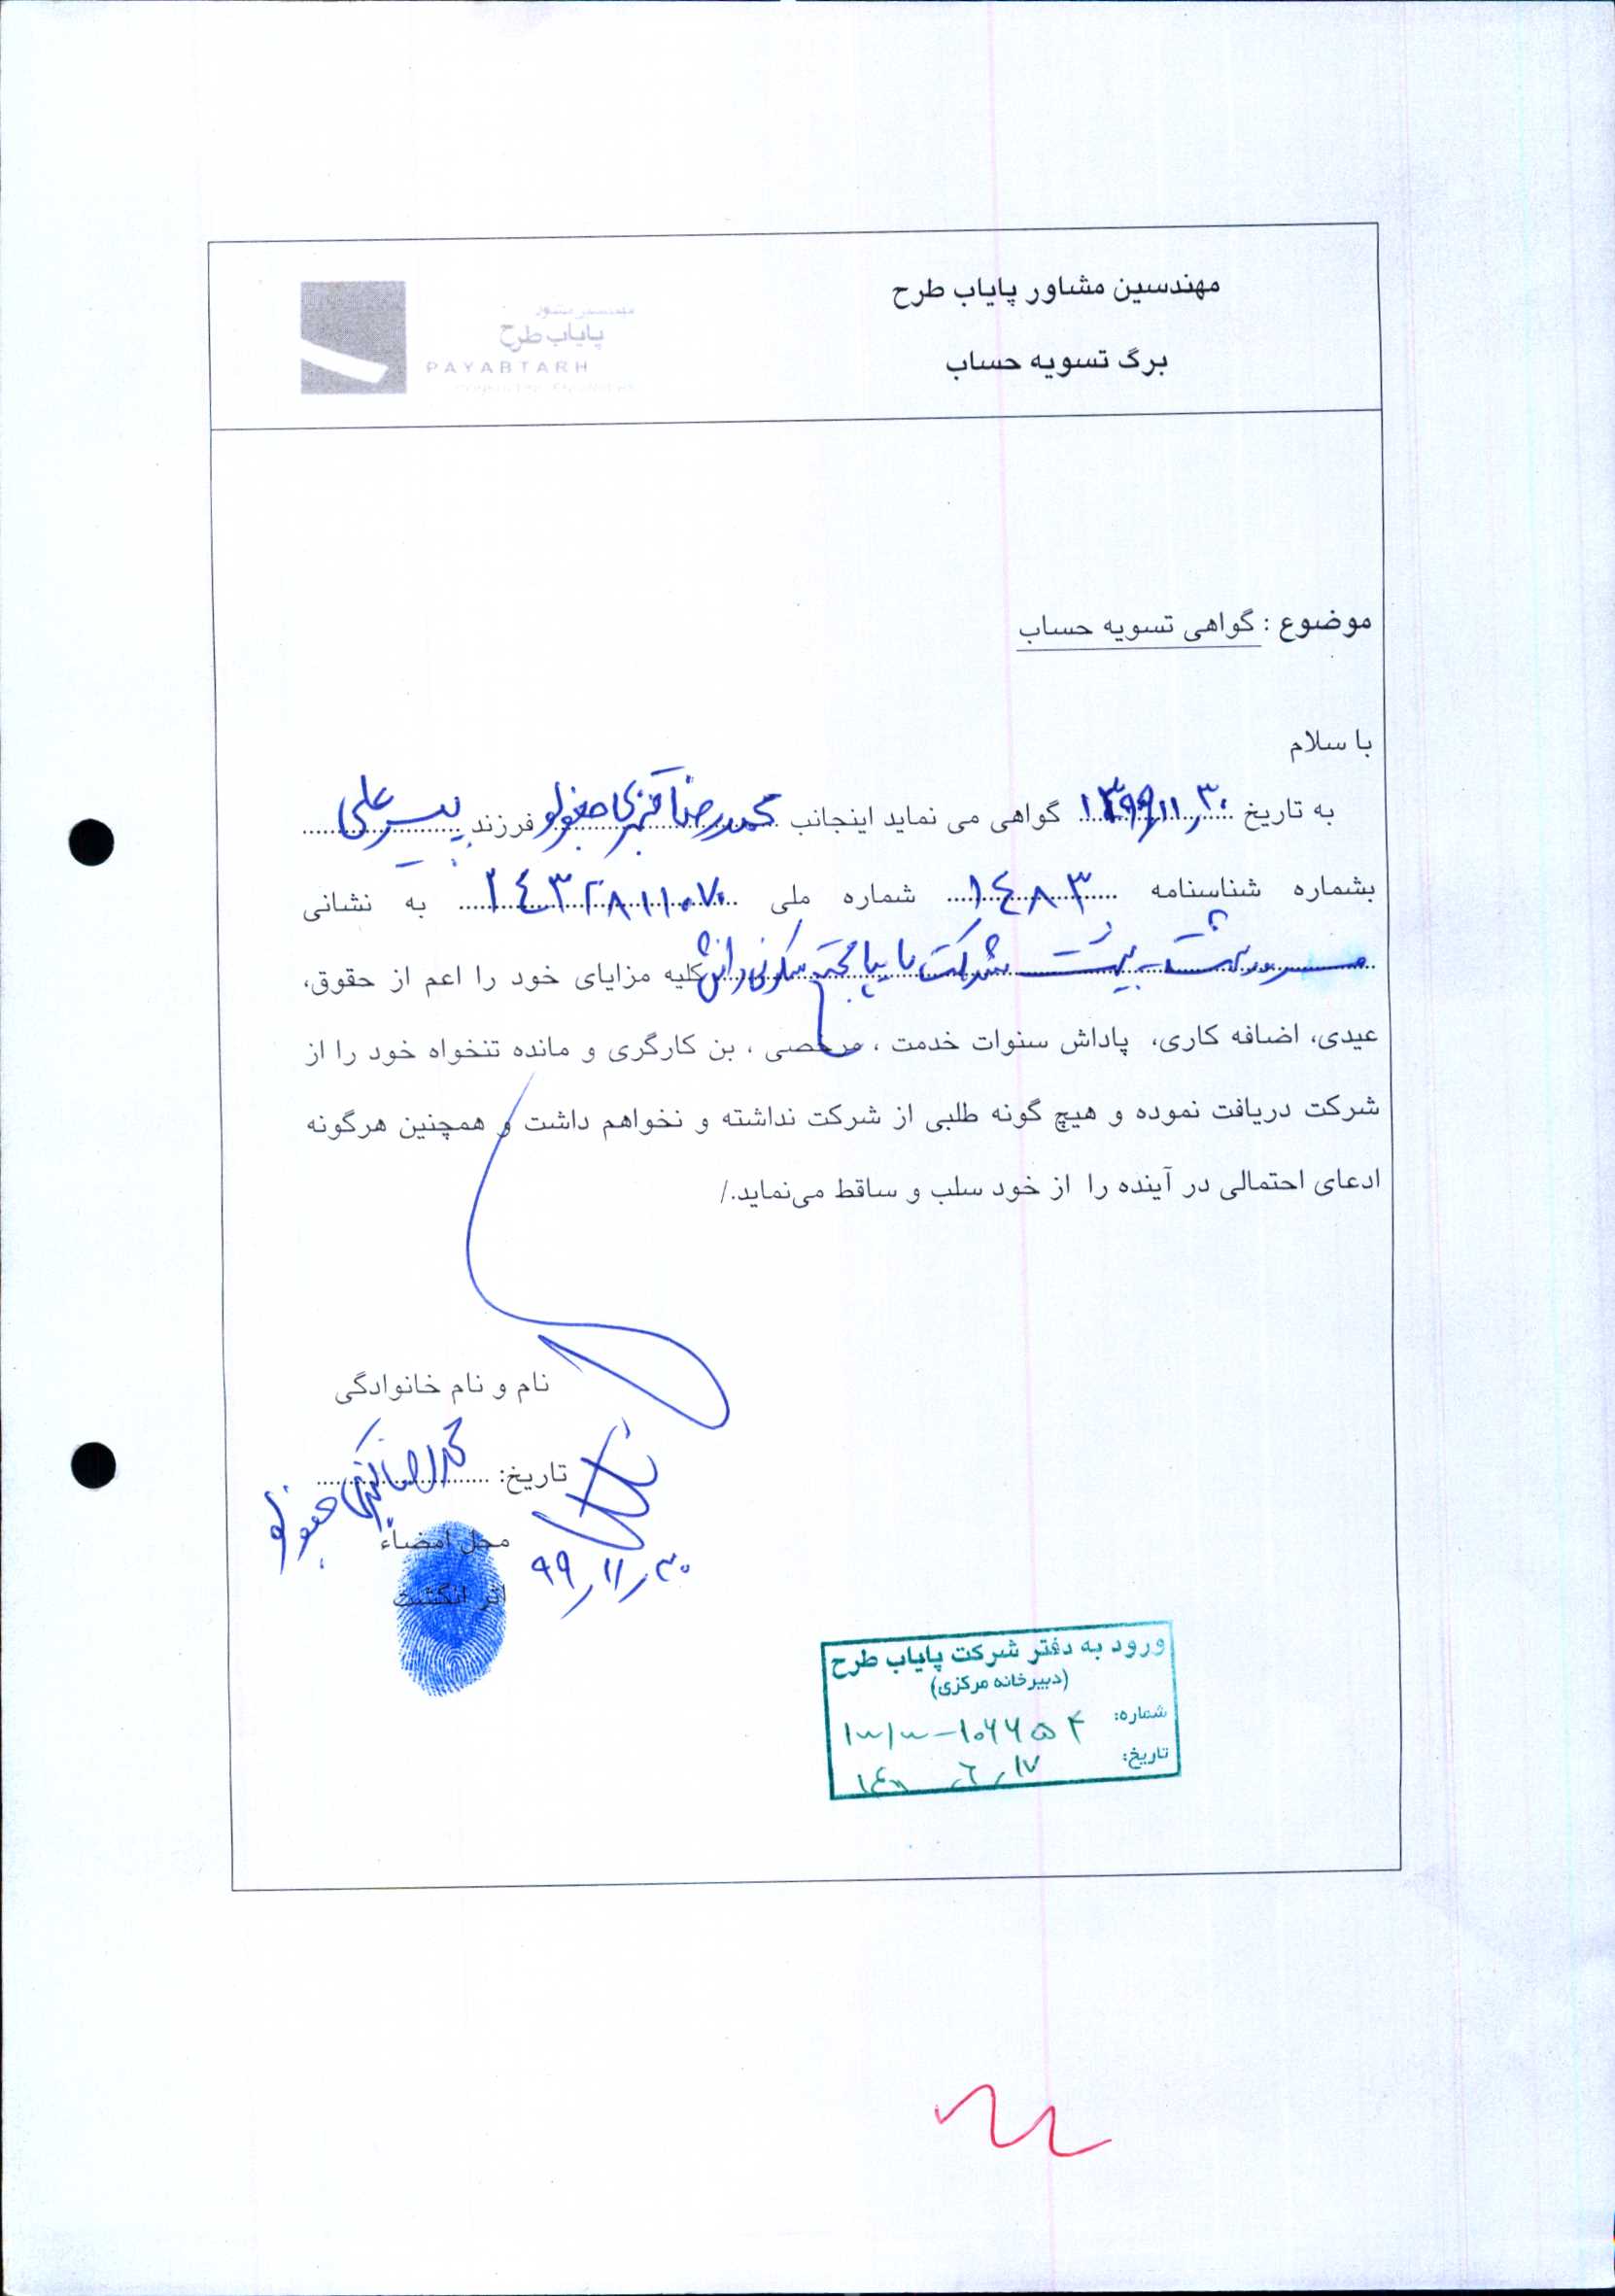 مهندسین مشاور پایاب طرح
برگ تسویه حساب
مهندسین مشاور
پایاب طرح
PAYABTARH
موضوع : گواهی تسویه حساب
با سلام
به تاریخ ۱۳۹۹/۱۱/۳۰ گواهی می نماید اینجانب محمدرضا قنبری صفرلو فرزند
بشماره شناسنامه ۱۴۸۳ شماره ملی به نشانی
شرکت کلیه مزایای خود را اعم از حقوق،
عیدی، اضافه کاری، پاداش سنوات خدمت ، مرخصی ، بن کارگری و مانده تنخواه خود را از
شرکت دریافت نموده و هیچ گونه طلبی از شرکت نداشته و نخواهم داشت و همچنین هرگونه
ادعای احتمالی در آینده را از خود سلب و ساقط می‌نماید./
نام و نام خانوادگی
تاریخ: محمدرضا
محل امضاء
اثر انگشت
۹۹/۱۱/۳۰
ورود به دفتر شرکت پایاب طرح
(دبیرخانه مرکزی)
شماره:
تاریخ: ۱۴۰۰/۶/۱۷